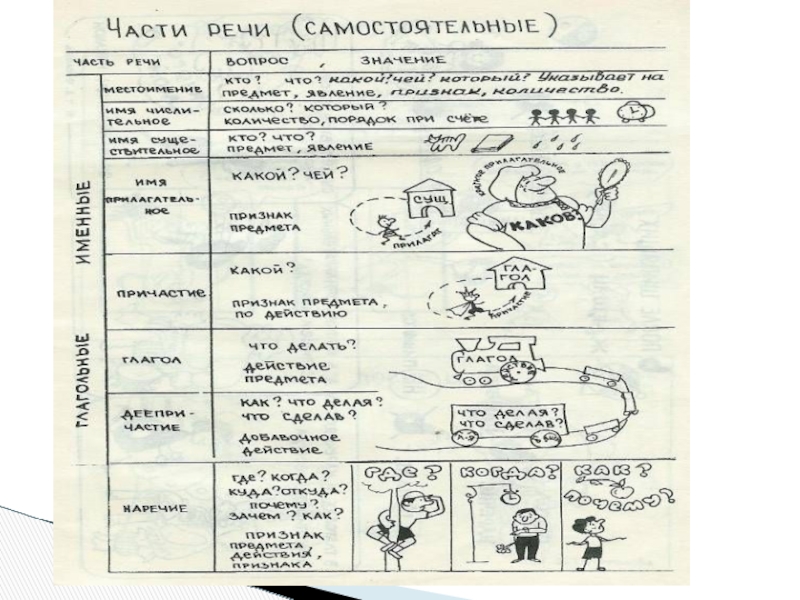 Части речи (самостоятельные)
часть речи вопрос, значение
именные
глагольные
местоимение
кто? что? какой? чей? который? Указывает на
предмет, явление, признак, количество.
имя числи-
тельное
сколько? который?
количество, порядок при счёте
имя суще-
ствительное
кто? что?
предмет, явление
имя
прилагатель-
ное
какой? чей?
признак
предмета
сущ.
прилагат
прилагательное
каков?
причастие
какой?
признак предмета,
по действию
гла-
гол
причастие
глагол
что делать?
действие
предмета
глагол
деепри-
частие
как? что делая?
что сделав?
добавочное
действие
что делая?
что сделав?
наречие
где? когда?
куда? откуда?
почему?
зачем? как?
признак
предмета,
действия,
признака
где?
когда?
как?
почему?